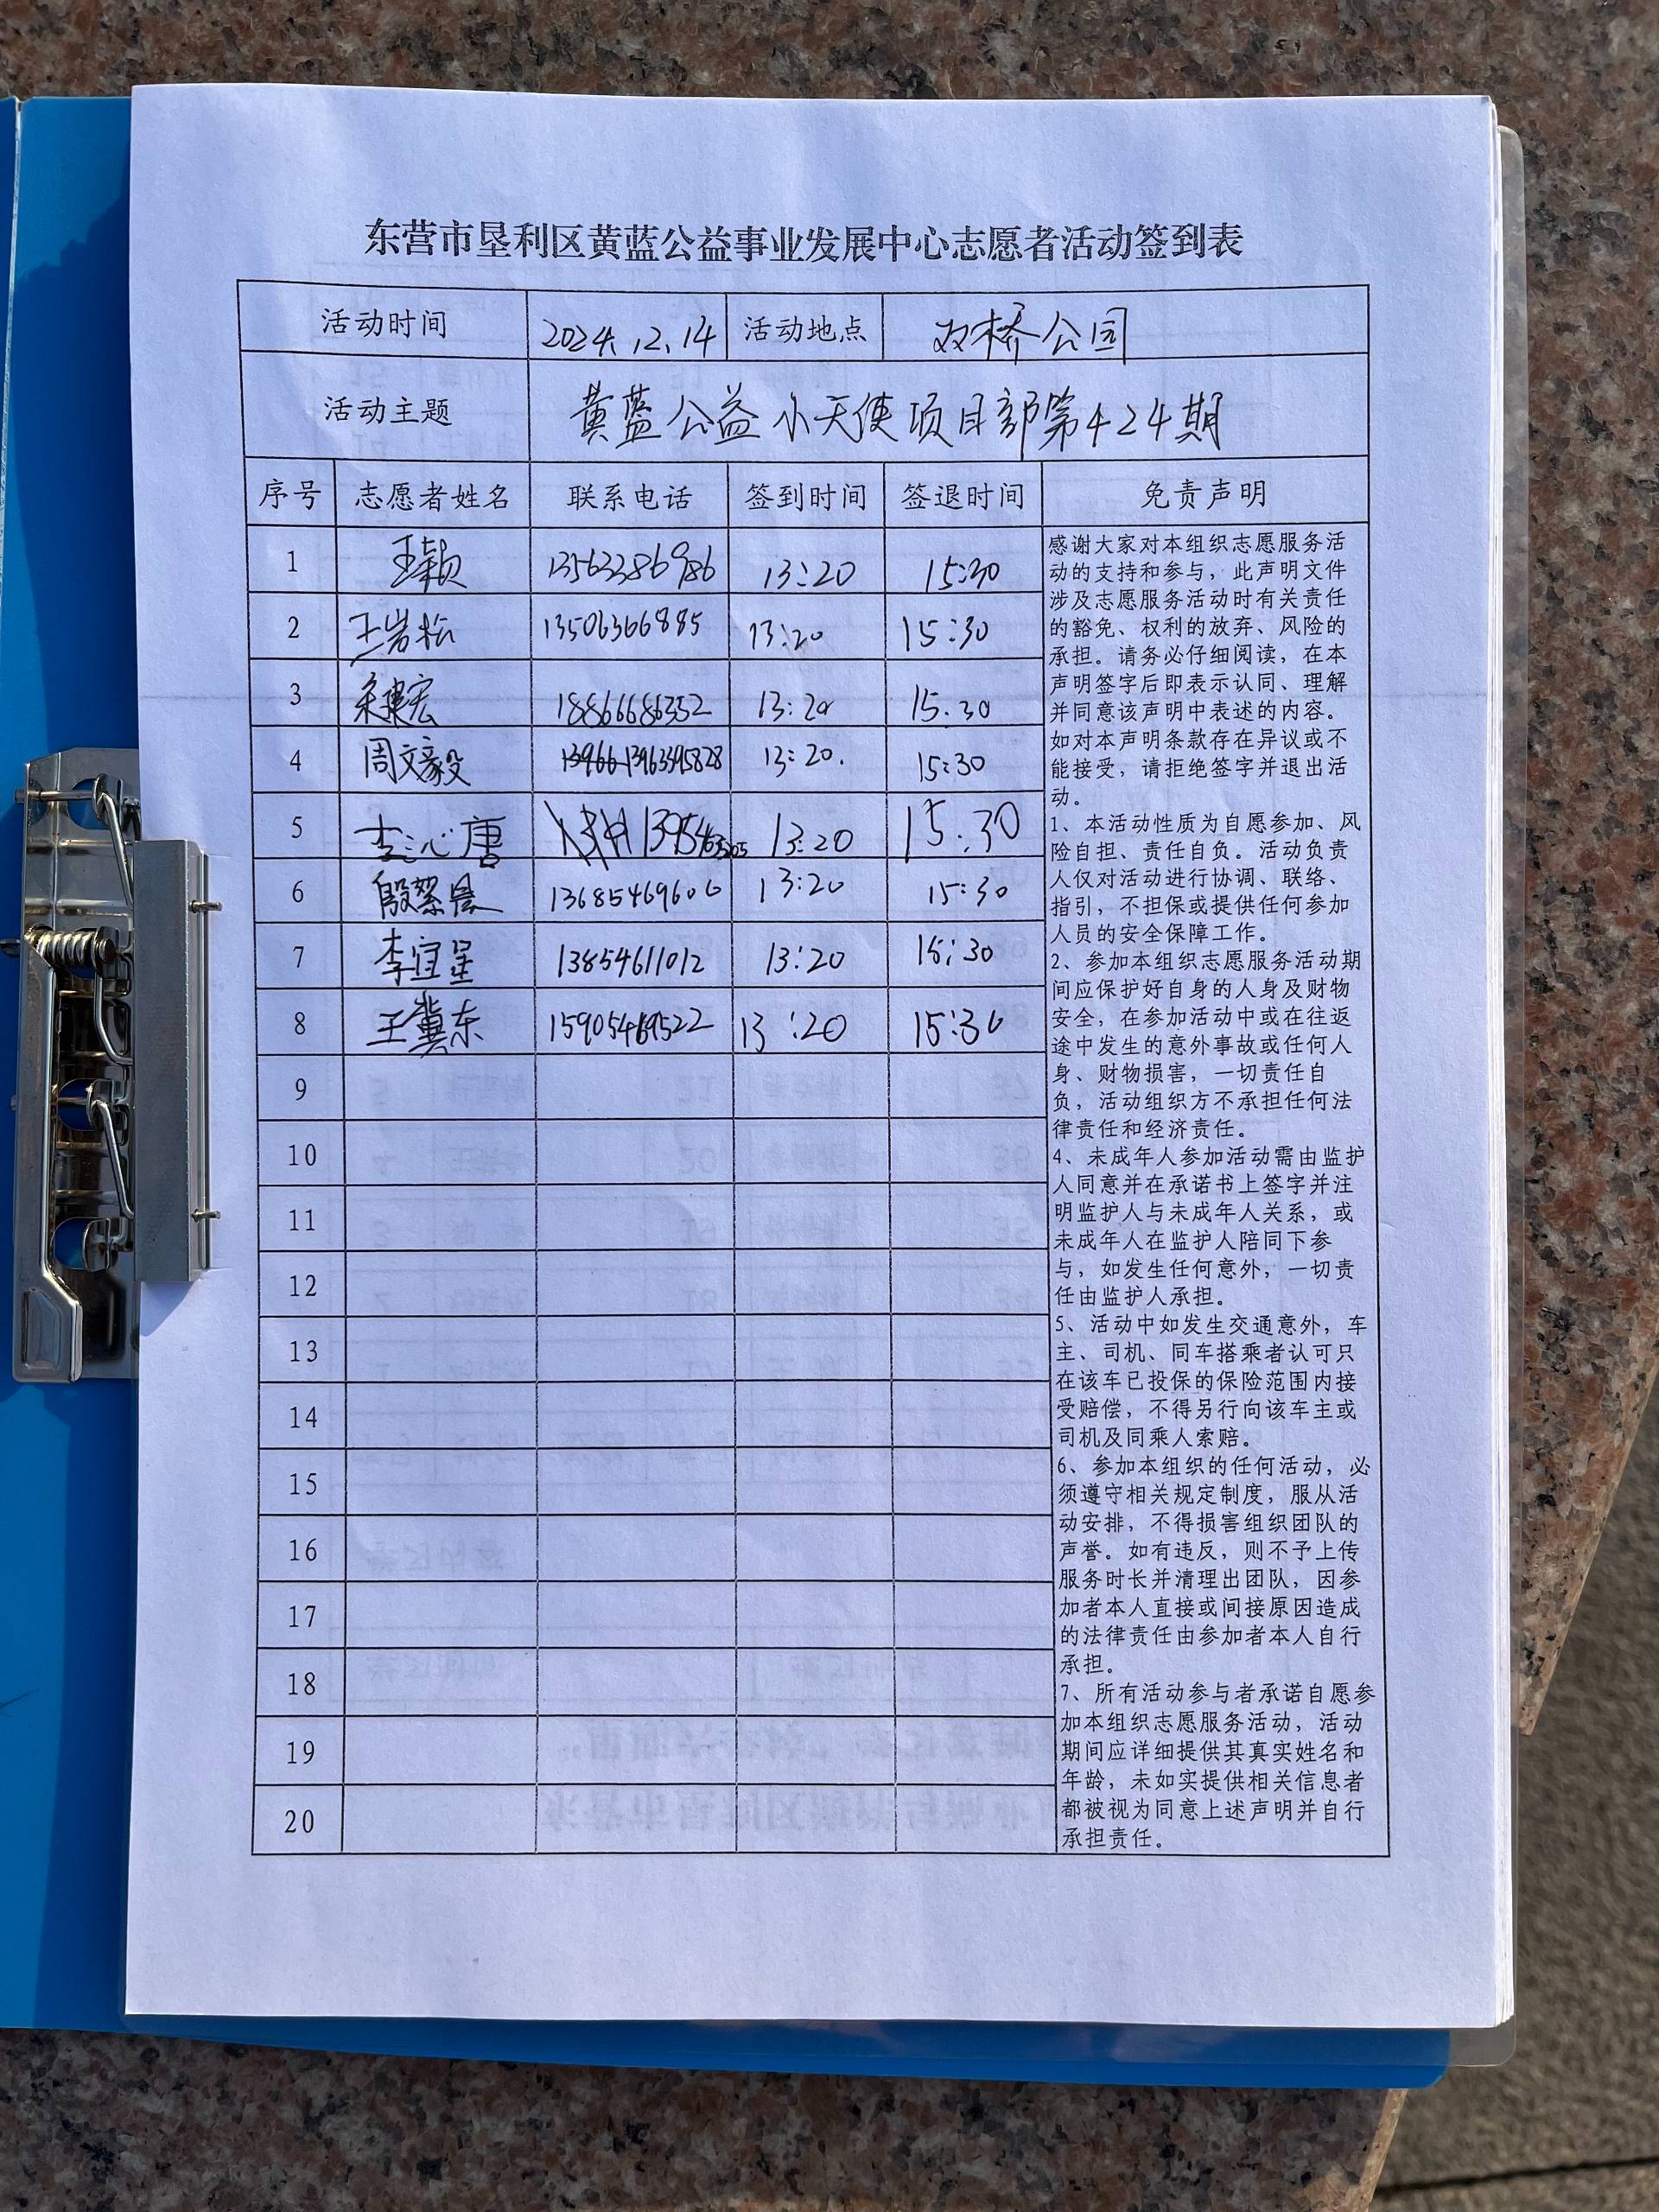 东营市垦利区黄蓝公益事业发展中心志愿者活动签到表
活动时间 2024.12.14 活动地点 双桥公园
活动主题 黄蓝公益小天使项目部第424期
序号 志愿者姓名 联系电话 签到时间 签退时间 免责声明
1 王颖 13563386986 13:20 15:30
2 王岩松 13506366885 13:20 15:30
3 宏 18866686352 13:20 15.30
4 周文毅 13963395828 13:20. 15:30
5 李沁唐 13:20 15:30
6 殷 13685469606 13:20 15:30
7 李宜星 13854611012 13:20 15:30
8 王冀东 15905469522 13:20 15:30
9
10
11
12
13
14
15
16
17
18
19
20
感谢大家对本组织志愿服务活
动的支持和参与，此声明文件
涉及志愿服务活动时有关责任
的豁免、权利的放弃、风险的
承担。请务必仔细阅读，在本
声明签字后即表示认同、理解
并同意该声明中表述的内容。
如对本声明条款存在异议或不
能接受，请拒绝签字并退出活
动。
1、本活动性质为自愿参加、风
险自担、责任自负。活动负责
人仅对活动进行协调、联络、
指引，不担保或提供任何参加
人员的安全保障工作。
2、参加本组织志愿服务活动期
间应保护好自身的人身及财物
安全，在参加活动中或在往返
途中发生的意外事故或任何人
身、财物损害，一切责任自
负，活动组织方不承担任何法
律责任和经济责任。
4、未成年人参加活动需由监护
人同意并在承诺书上签字并注
明监护人与未成年人关系，或
未成年人在监护人陪同下参
与，如发生任何意外，一切责
任由监护人承担。
5、活动中如发生交通意外，车
主、司机、同车搭乘者认可只
在该车已投保的保险范围内接
受赔偿，不得另行向该车主或
司机及同乘人索赔。
6、参加本组织的任何活动，必
须遵守相关规定制度，服从活
动安排，不得损害组织团队的
声誉。如有违反，则不予上传
服务时长并清理出团队，因参
加者本人直接或间接原因造成
的法律责任由参加者本人自行
承担。
7、所有活动参与者承诺自愿参
加本组织志愿服务活动，活动
期间应详细提供其真实姓名和
年龄，未如实提供相关信息者
都被视为同意上述声明并自行
承担责任。